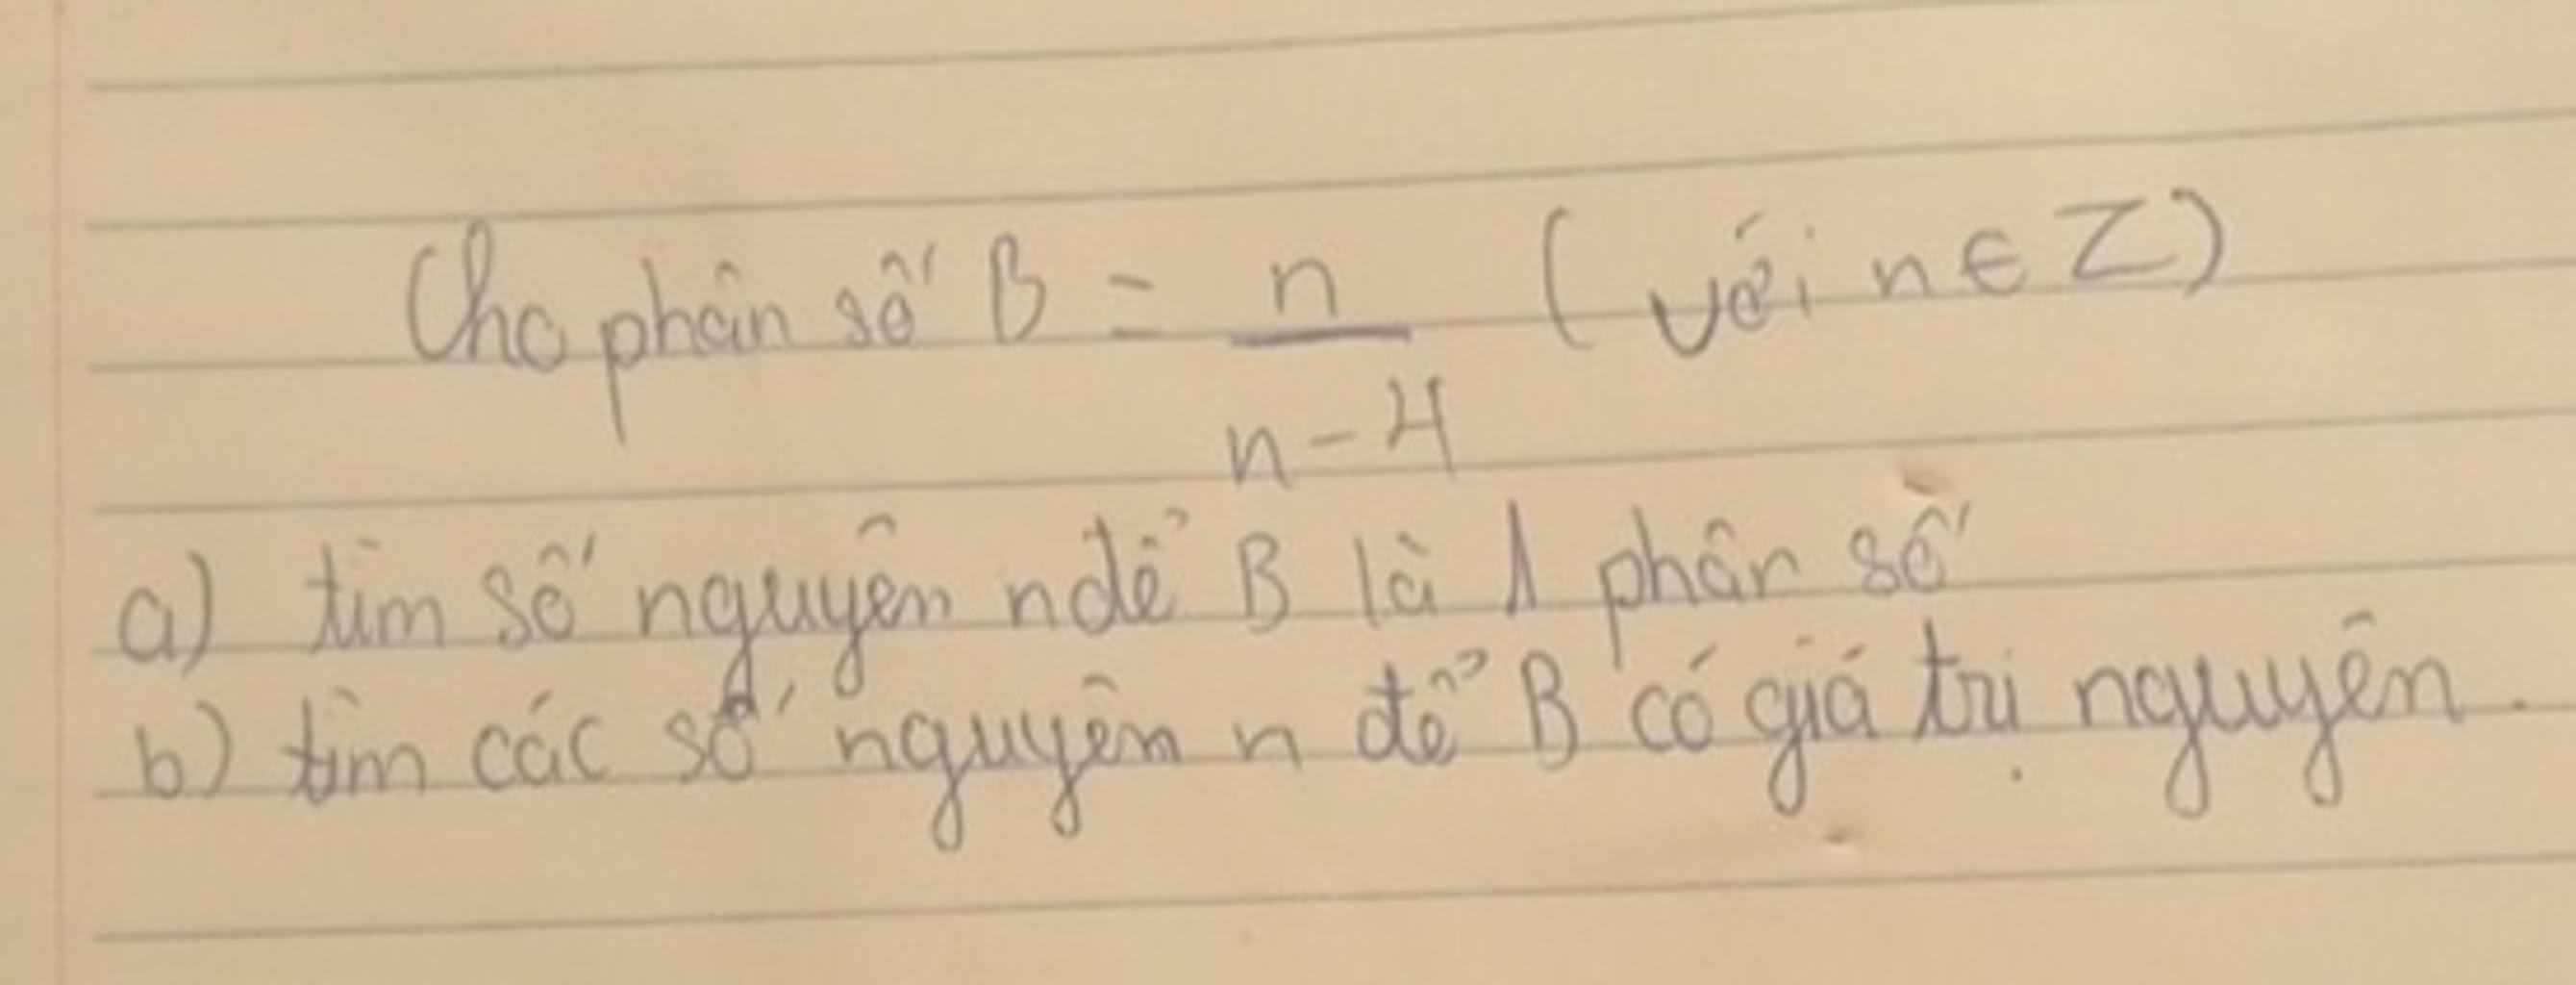 Cho phân số B = n ( với n ∈ Z )
n - 4
a) tìm số nguyên n để B là 1 phân số
b) tìm các số nguyên n để B có giá trị nguyên.